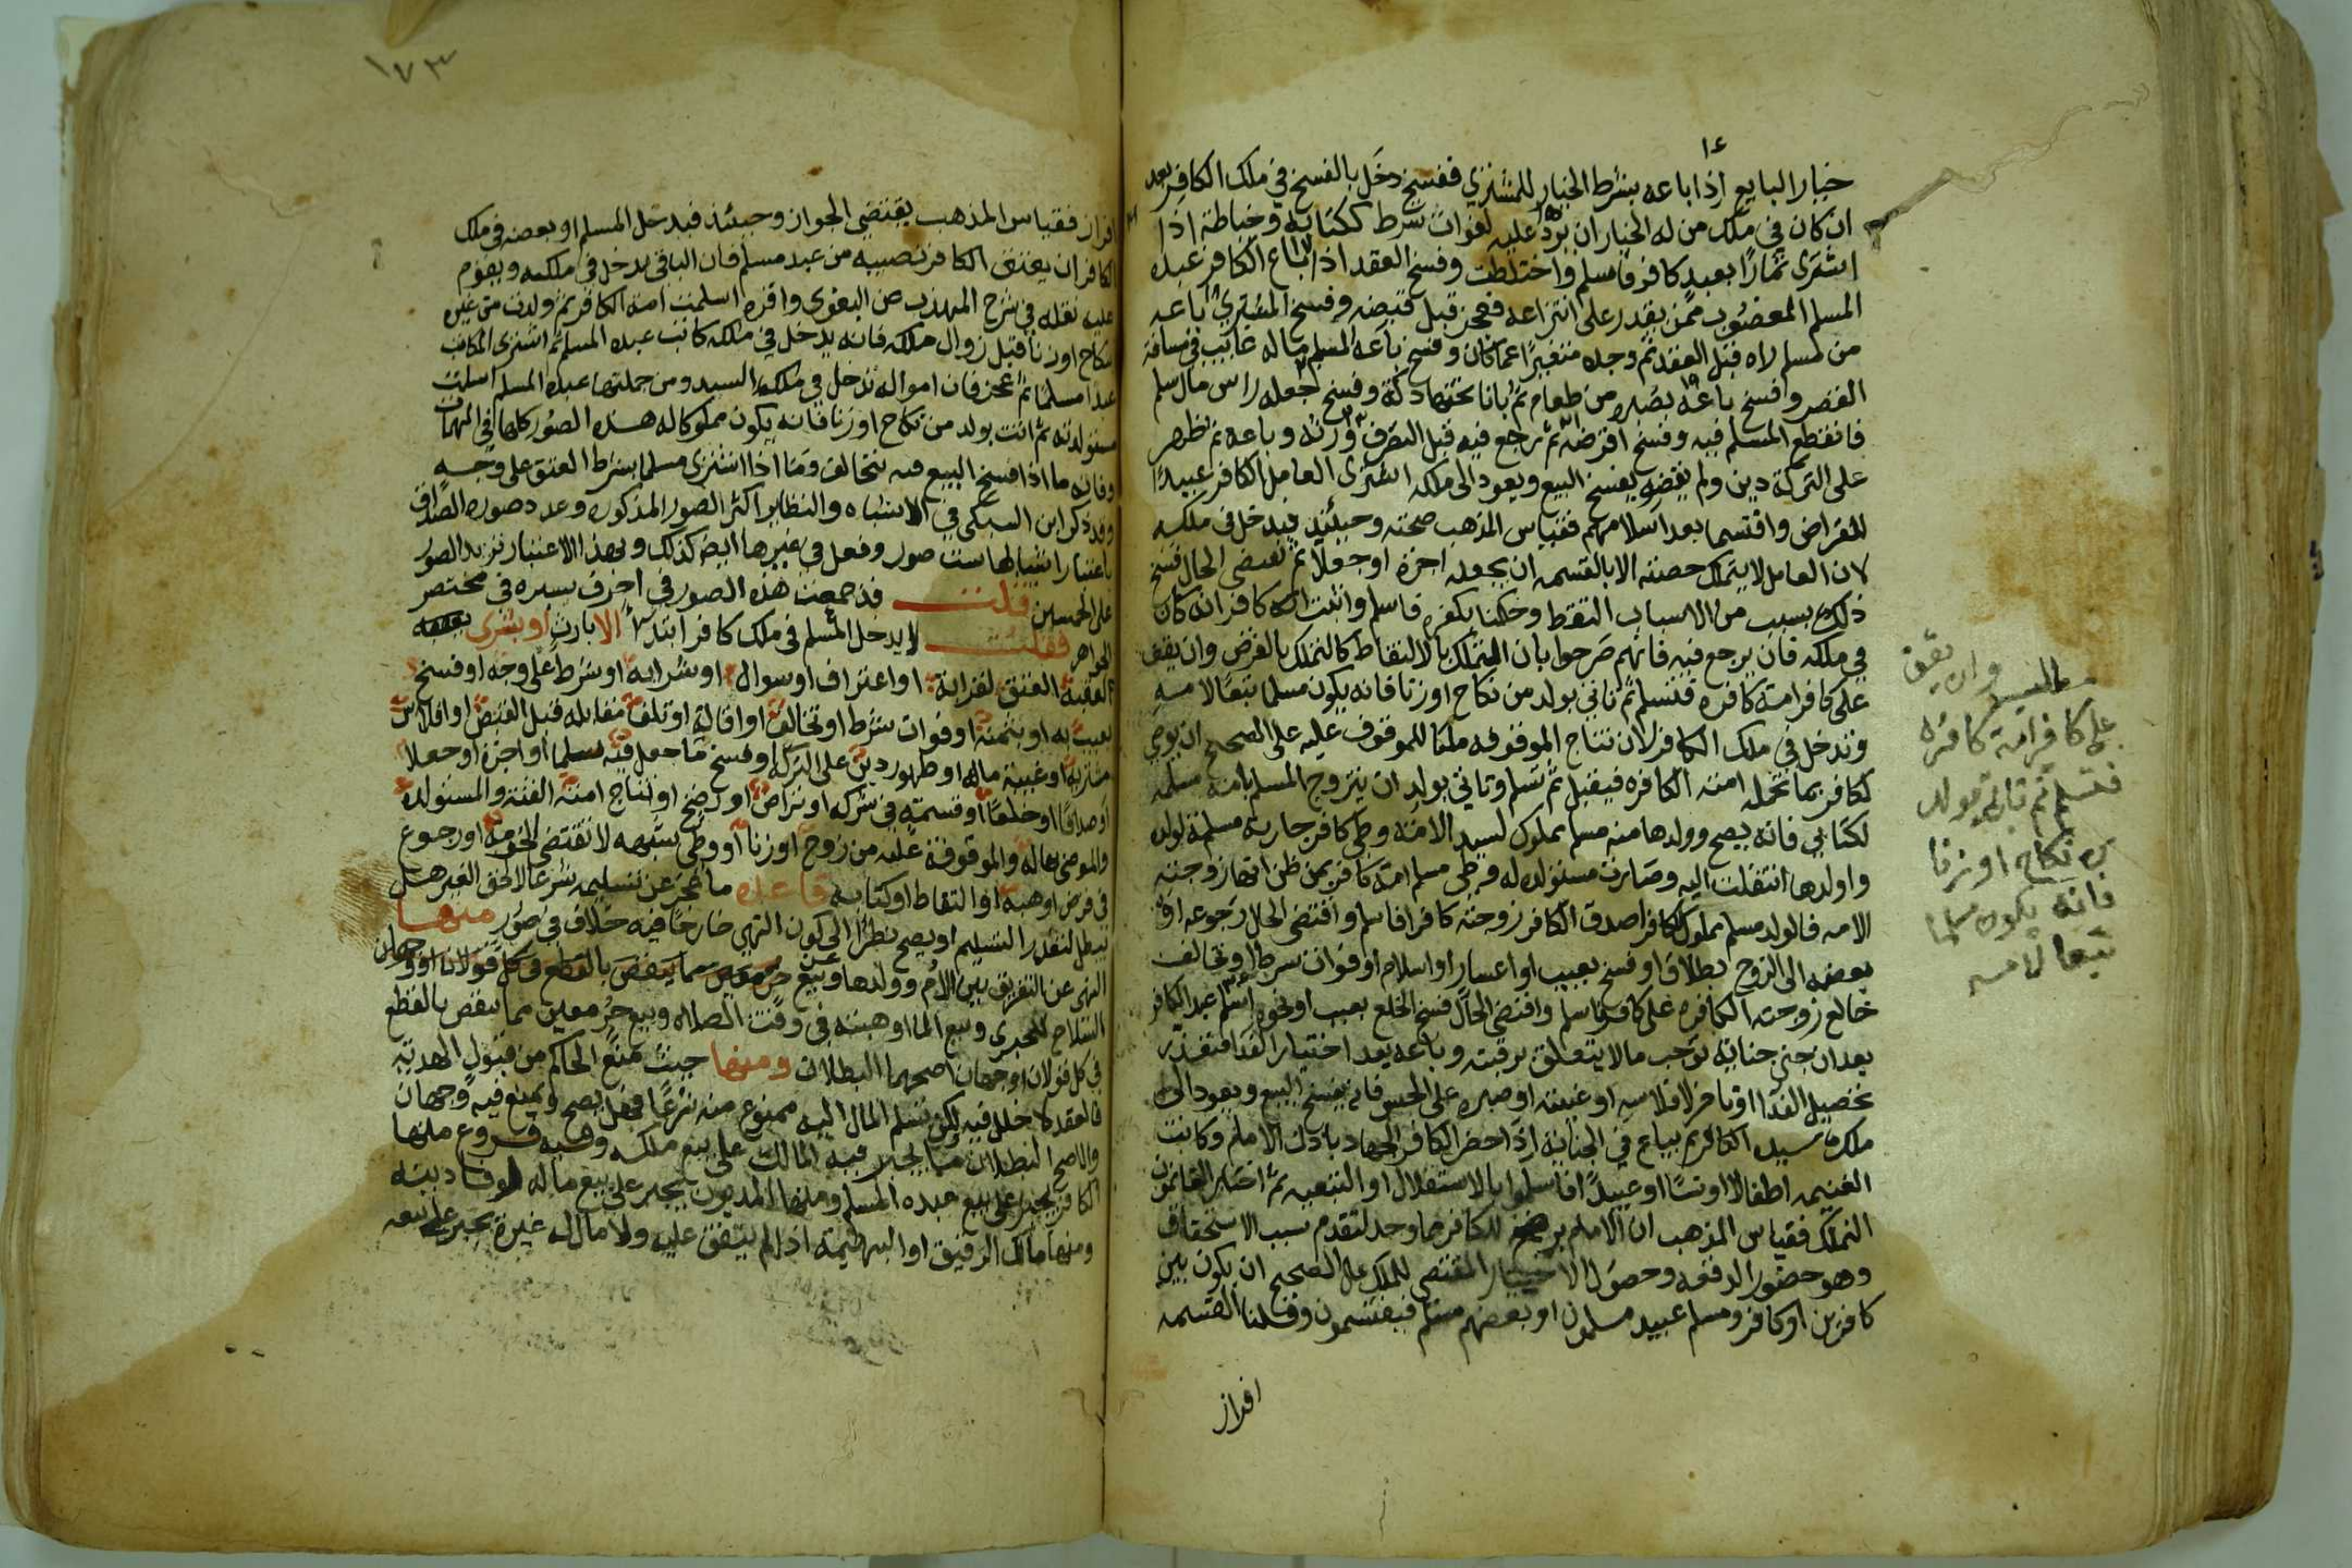 خيار البايع اذا باعه بشرط الخيار للمشتري ففسخ دخل بالفسخ في ملك الكافر بعد
ان كان في ملك من له الخيار ان يرد عليه لفوات شرط ككتابة وخياطة اذا
اشترى ثمارا بعبد كافر فاسلم واختلطت وفسخ العقد اذا باع الكافر عبده
المسلم المغصوب ممن يقدر على انتزاعه فعجز قبل قبضه وفسخ المشتري باعه
من مسلم راه قبل العقد ثم وجده متغيرا عما كان وفسخ باعه المسلم ماله غايب في مسافة
القصر وفسخ باعه بصبره من طعام ثم بانا تحتها دكة وفسخ جعله راس مال سلم
فانقطع المسلم فيه وفسخ اقرضه ثم رجع فيه قبل التصرف ورثه وباعه ثم ظهر
على التركة دين ولم يقضه يفسخ البيع ويعود الى ملكه اشترى العامل الكافر عبيدا
للقراض واقتسما بعد اسلامهم فقياس المذهب صحته وحينئذ فيدخل في ملكه
لان العامل لا يتملك حصته الا بالقسمة ان يجعله اجرة او جعلا ثم تقتضي الحال فسخ
ذلك بسبب من الاسباب التقط وحكمنا بكفره فاسلم واثبت انه كافر انه كان
في ملكه فان يرجع فيه فانهم صرحوا بان التملك بالالتقاط كالتملك بالقرض وان يقف
على كافر امة كافره فتسلم ثم تاتي بولد من نكاح او زنا فانه يكون مسلما تبعا لامه
وتدخل في ملك الكافر لان نتاج الموقوفه ملكا للموقوف عليه على الصحيح ان يوصي
لكافر بما تحمله امته الكافره فيقبل ثم تسلم وتاتي بولد ان يتزوج المسلم بامة مسلمة
لكتابي فانه يصح وولدها منه مسلم مملوك لسيد الامة وطي كافر جارية مسلمة لولده
واولدها انتقلت اليه وصارت مستولدة له وطي مسلم امة كافر يمن ظن انها زوجته
الامه فالولد مسلم مملوك للكافر اصدق الكافر زوجته كافرا فاسلم واقتضى الحال رجوعه او
بعضه الى الزوج بطلاق او فسخ بعيب او اعسار او اسلام او فوات شرط او تحالف
خالع زوجته الكافره على كافر فاسلم واقتضى الحال فسخ الخلع بعيب او نحوه اسلم عبد الكافر
بعد ان جنى جناية توجب مالا يتعلق برقبته وباعه بعد اختيار الفدا فتعذر
تحصيل الفدا او تاخر لافلاسه او غيبته او صبره على الحبس فانه يفسخ البيع ويعود الى
ملك سيده الكافر ثم يباع في الجناية اذا حضر الكافر الجهاد باذن الامام وكانت
الغنيمه اطفالا او نسا او عبيدا فاسلموا بالاستقلال او التبعيه ثم اختار الغانمون
التملك فقياس المذهب ان الامام يرضخ للكافر مما وجد لتقدم سبب الاستحقاق
وهو حضور الوقعه وحصول الاختيار المقتضي للملك على الصحيح ان يكون بين
كافرين او كافر ومسلم عبيد مسلمون او بعضهم مسلم فيقتسمون وقلنا القسمه
افراز
وان يقف
على كافر امة كافره
فتسلم ثم تاتي بولد
من نكاح او زنا
فانه يكون مسلما
تبعا لامه
١٧٣
افراز فقياس المذهب يقتضي الجواز وحينئذ فيدخل المسلم او بعضه في ملك
الكافر ان يعتق الكافر نصيبه من عبد مسلم فان الباقي يدخل في ملكه ويقوم
عليه نقله في شرح المهذب عن البغوي واقره اسلمت امة الكافر ثم ولدت من غير
نكاح او زنا قبل زوال ملكه فانه يدخل في ملكه كاتب عبده المسلم ثم اشترى المكاتب
عبدا مسلما ثم عجز فان امواله تدخل في ملك السيد ومن جملتها عبده المسلم اسلمت
مستولدته ثم اتت بولد من نكاح او زنا فانه يكون مملوكا له هذه الصور كلها في المهمات
وفاته ما اذا فسخ البيع فيه بتحالف وما اذا اشترى مسلما بشرط العتق على وجه
وقد ذكر ابن السبكي في الاشباه والنظاير اكثر الصور المذكوره وعد صوره الصداق
باعتبار اسبابها ست صور وفعل في غيرها ايضا كذلك وبهذا الاعتبار تزيد الصور
على الخمسين قلت قد جمعت هذه الصور في احرف يسيره في مختصر
الجواهر فقلت لا يدخل المسلم في ملك كافر ابتدا الا بارث او بشرى
العتق لقرابة او اعتراف او سوال او شرايه او شرط على وجه او فسخ
بعيب به او بثمنه او فوات شرط او تحالف او اقالة او تلف مقابله قبل القبض او افلاس
مشتريه او غيبة ماله او ظهور دين على التركه او فسخ ما جعل فيه سلما او اجرة او جعلا
او صداقا او خلعا او قسمته في شركه او قراض او رضخ او نتاج امته القنة والمستولده
والموصى بها له والموقوفة عليه من زوج او زنا او وطي بشبهه لا تقتضي الحريه او رجوع
في قرض او هبة او التقاط او كتابة قاعده ما عجز عن تسليمه شرعا لا لحق الغير هل
يبطل لتعذر التسليم او يصح نظرا الى كون النهي خارجا فيه خلاف في صور منها
النهي عن التفريق بين الام وولدها وبيع جزء معين مما ينقص بالقطع في كل قولان او وجهان
السلاح للحربي وبيع الما او هبته في وقت الصلاه وبيع جزء معين مما ينقص بالقطع
في كل قولان او وجهان اصحهما البطلان ومنها حيث منع الحاكم من قبول الهديه
فالعقد لا خلل فيه لكن تسلم المال اليه ممنوع منه شرعا فهل يصح ويمنع فيه وجهان
والاصح البطلان ما يجبر فيه المالك على بيع ملكه وفيه فروع منها
الكافر يجبر على بيع عبده المسلم ومنها المديون يجبر على بيع ماله لوفا دينه
ومنها مالك الرقيق او البهيمة اذا لم ينفق عليه ولا مال له غيره يجبر على بيعه